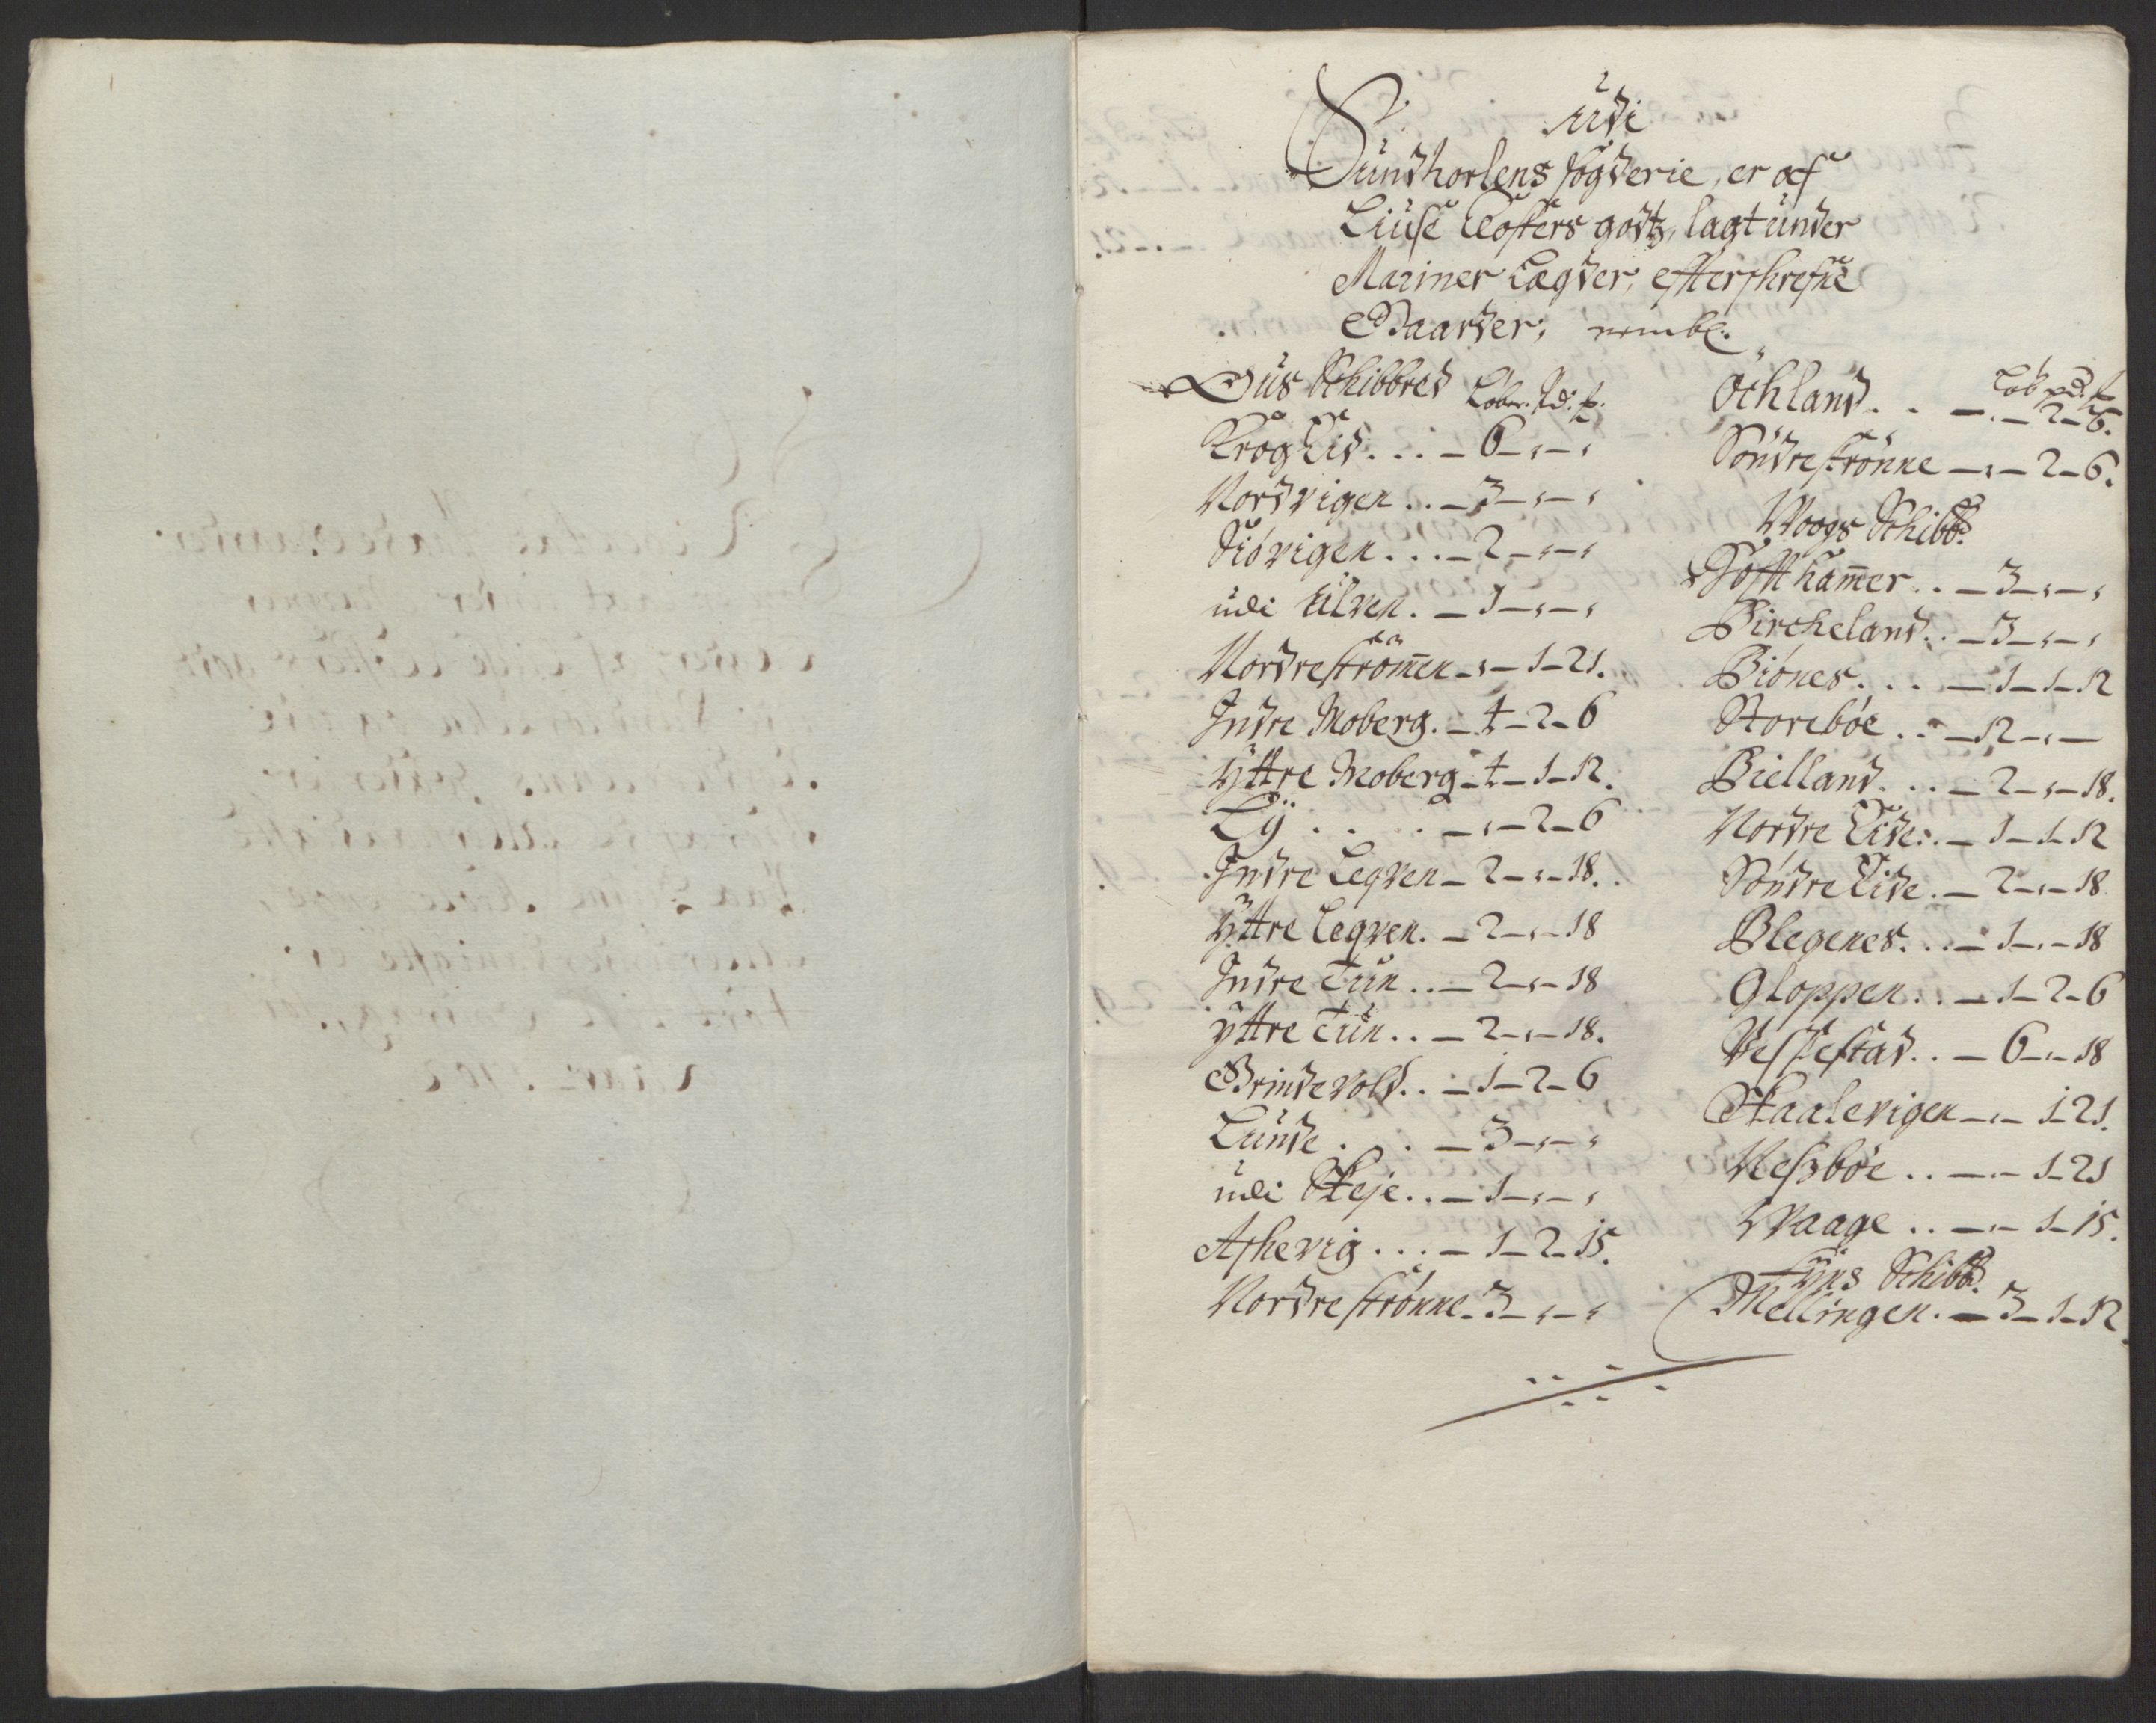 Udi
Sundhorlens fogderie, er af
Liuse Closters godtz, lagt under
Mariner Lægder, efterskrefne
Gaarder, nembl.
Ous Schibbred Løber. Pd. ℔.
Krog Eid . . . – 6 – „ – „
Nordvigen . . – 3 – „ – „
Siøvigen . . . – 2 – „ – „
udi Ulven . – 1 – „ – „
Nordrestrømen – „ – 1 – 21.
Indre Moberg . – 4 – 2 – 6
Yttre Moberg – 4 – 1 – 12.
Lÿ . . . . – „ – 2 – 6
Indre Legven – 2 – „ – 18.
Yttre Legven . – 2 – „ – 18
Indre Tun . . – 2 – „ – 18
yttre Tun . . – 2 – „ – 18.
Grindevold . . – 1 – 2 – 6
Lunde . . . – 3 – „ – „
udi Skeje . . – 1 – „ – „
Askevig . . . – 1 – 2 – 15.
Nordrestrønne – 3 – „ – „
Løb pd. ℔
Öchland . . – „ – 2 – 6.
Søndrestrønne – „ – 2 – 6.
Woogs Schibb:
Hofft hamer . . – 3 – „ – „
Bircheland . . – 3 – „ – „
Biönes . . . – 1 – 1 – 12
Storebøe . . – 12 – „ –
Bielland . . . – 2 – „ – 18.
Nordre Eide . . – 1 – 1 – 12
Søndre Eide . – 2 – „ – 18
Blegenes . . . – 1 – „ – 18
Gloppen . . – 1 – 2 – 6
Vestestad . . – 6 – „ – 18
Skaalevigen – „ – 1 – 21.
Neszbøe . . – „ – 1 – 21
Waage . . – „ – 1 – 15.
Fÿns Schibb:
Mellingen . – 3 – 1 – 12.